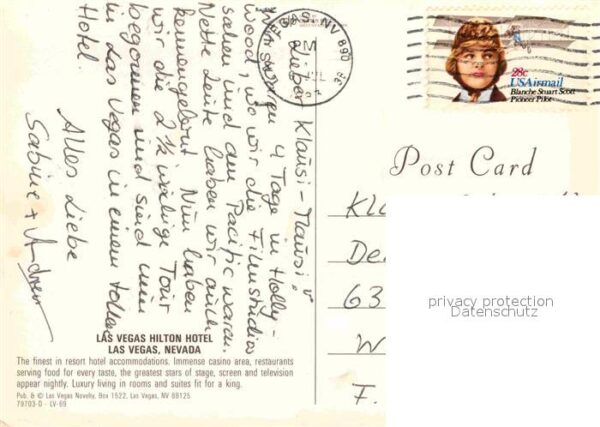 LAS VEGAS, NV 890
28c
USAirmail
Blanche Stuart Scott
Pioneer Pilot
Post Card
Lieber Klausi-Mausi,
Wir waren 4 Tage in Holly-
wood, wo wir die Filmstudios
sahen und am Pacific waren.
Nette Leute haben wir auch
kennengelernt. Nun haben
wir die 2½ wöchige Tour
begonnen und sind nun
in Las Vegas in einem tollen
Hotel.
Alles Liebe
Sabine + Andrew
Kl
De
63
W
F.
privacy protection
Datenschutz
LAS VEGAS HILTON HOTEL
LAS VEGAS, NEVADA
The finest in resort hotel accommodations. Immense casino area, restaurants
serving food for every taste, the greatest stars of stage, screen and television
appear nightly. Luxury living in rooms and suites fit for a king.
Pub. & © Las Vegas Novelty, Box 1522, Las Vegas, NV 89125
79703-D - LV-69